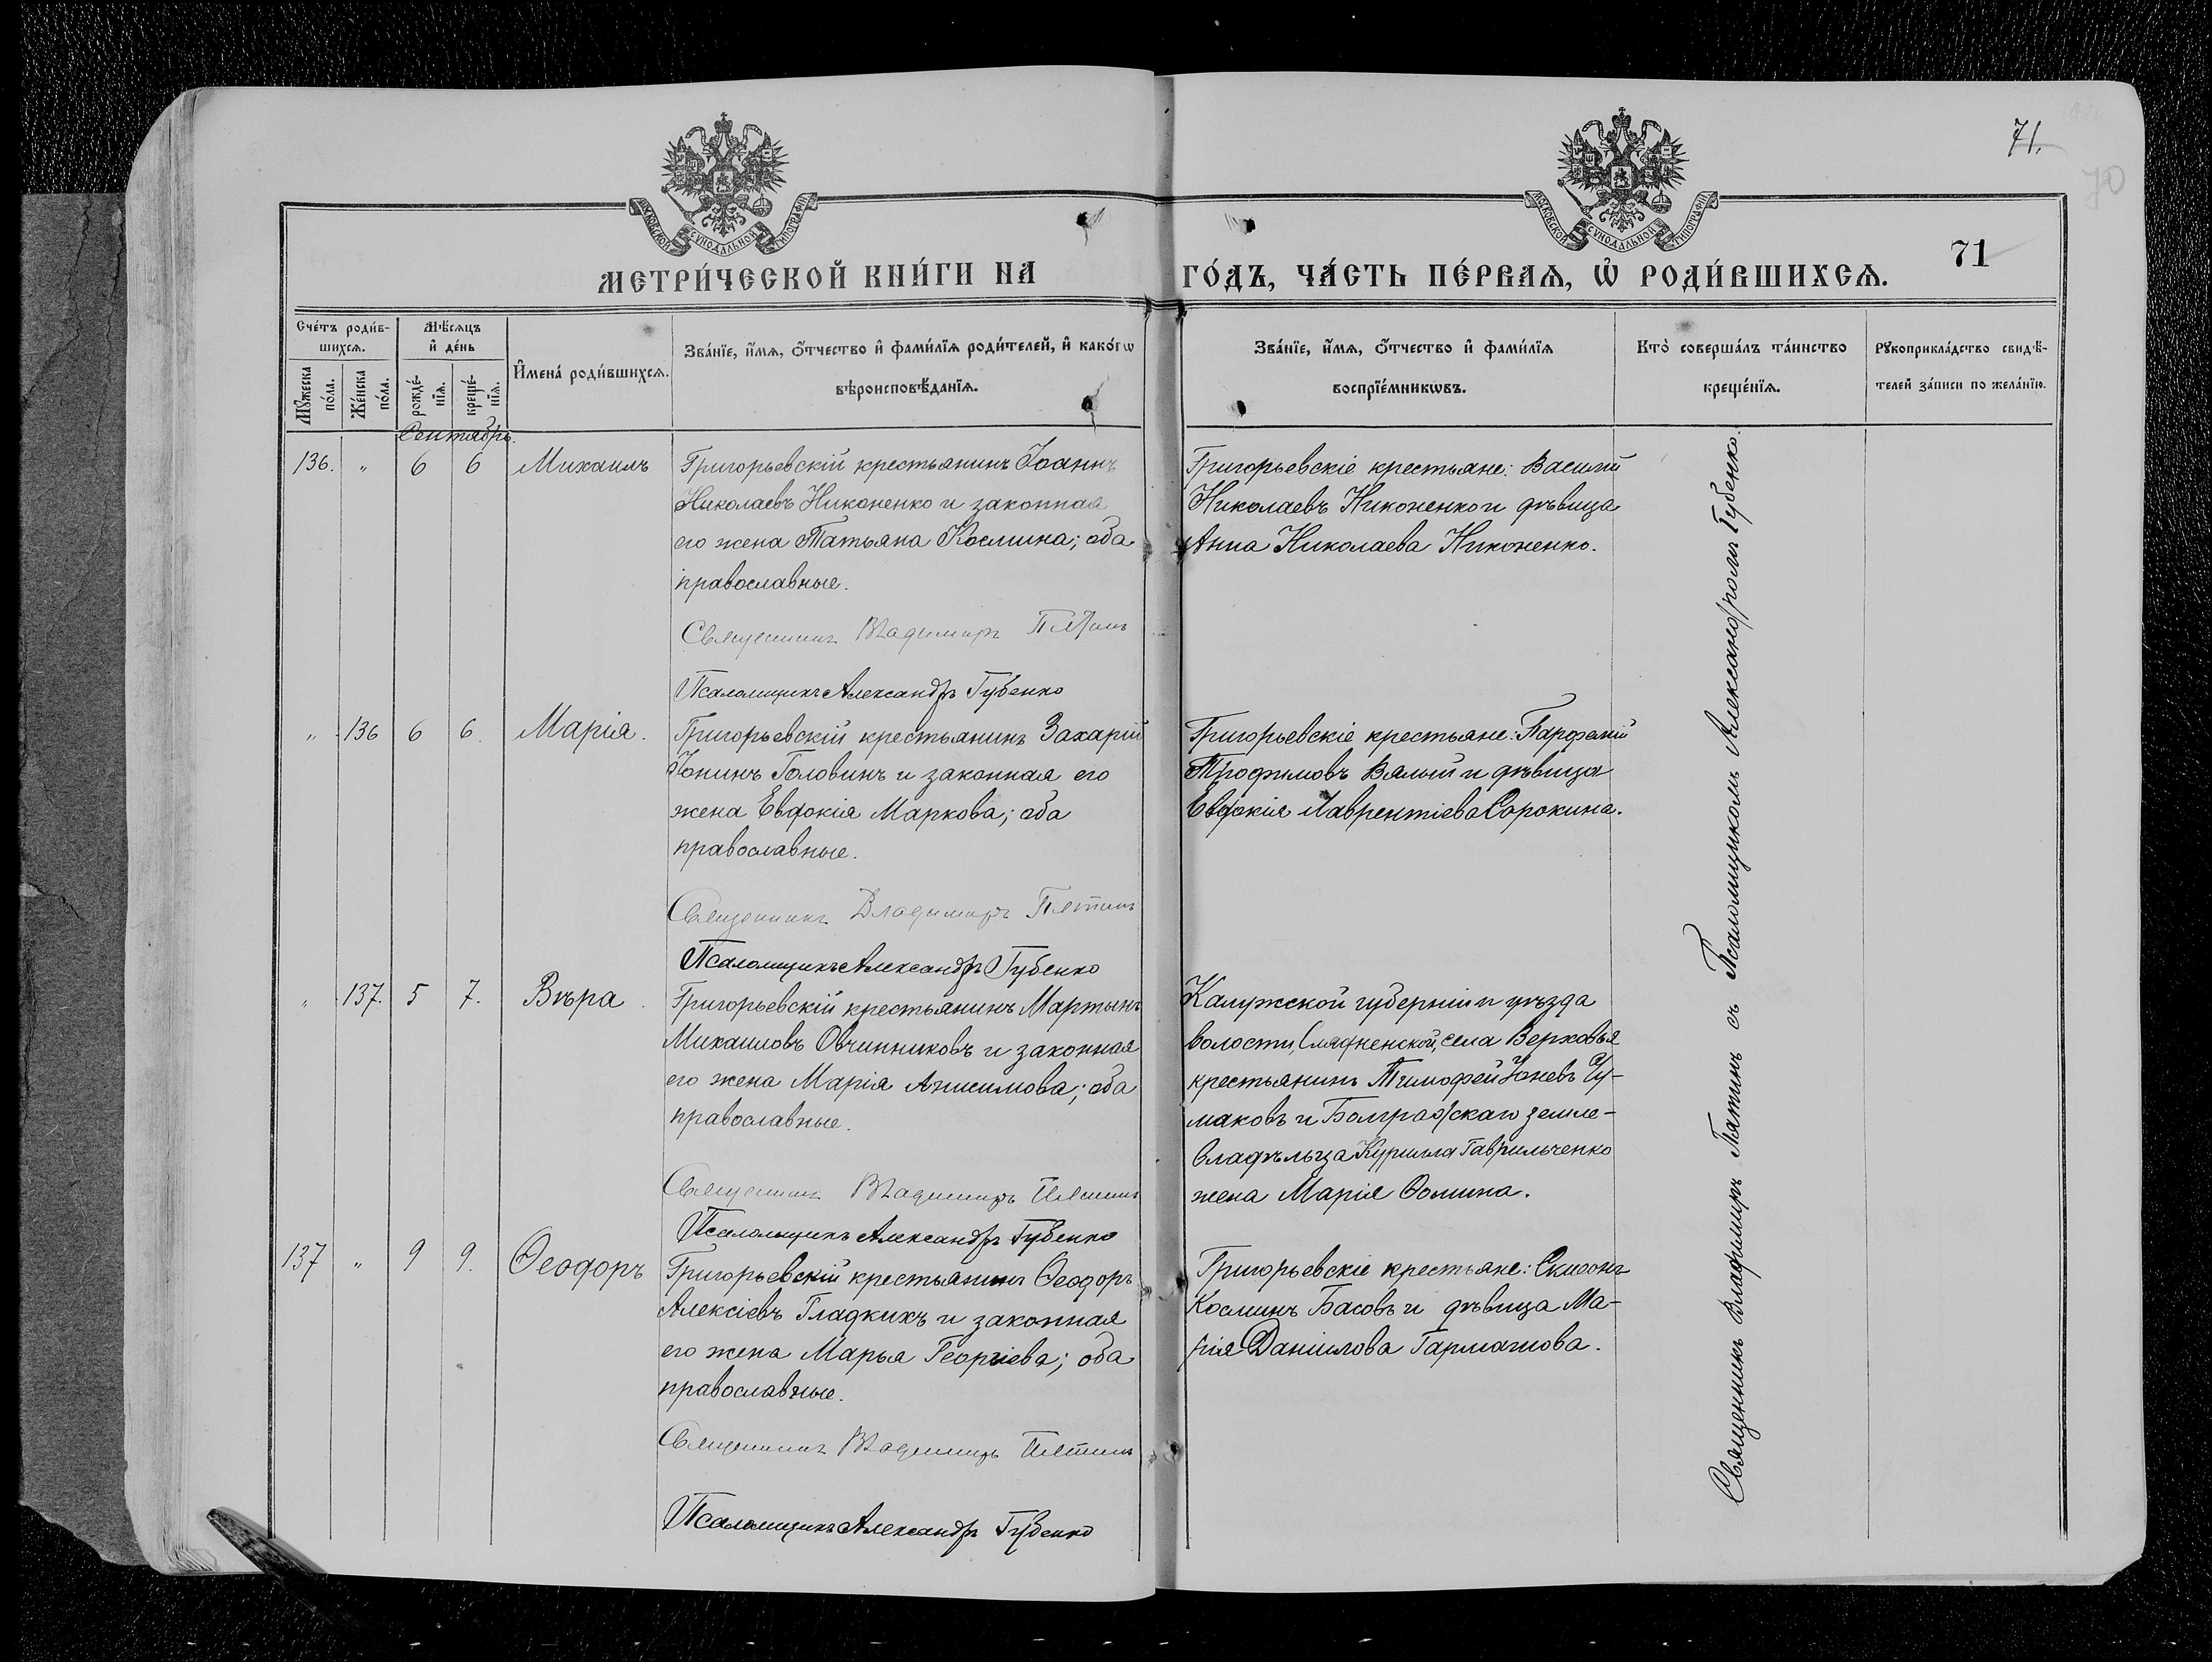 71.
70
МОСКОВСКОЙ СѴНОДАЛЬНОЙ ТИПОГРАФІИ
МОСКОВСКОЙ СѴНОДАЛЬНОЙ ТИПОГРАФІИ
МЕТРИ́ЧЕСКОЙ КНИ́ГИ НА ГО́ДЪ, ЧА́СТЬ ПЕ́РВАѦ, Ѽ РОДИ́ВШИХСѦ.
71
Сче́тъ роди́в-
шихсѧ.
Мꙋ́жеска
по́ла.
Же́нска
по́ла.
Мѣ́сѧцъ
и҆ де́нь
рожде́-
нїѧ.
креще́-
нїѧ.
И҆мена̀ роди́вшихсѧ.
Зва́нїе, и҆́мѧ, ѻ҆́тчество и҆ фами́лїѧ роди́телей, и҆ како́гѡ
вѣроисповѣ́данїѧ.
Зва́нїе, и҆́мѧ, ѻ҆́тчество и҆ фами́лїѧ
воспрїе́мникѡвъ.
Кто̀ соверша́лъ та́инство
креще́нїѧ.
Рꙋкоприкла́дство свидѣ́-
телей за́писи по жела́нїю.
Сентябрь.
136. „ 6 6 Михаилъ
Григорьевскій крестьянинъ Іоаннъ
Николаевъ Никоненко и законная
его жена Татьяна Космина; оба
православные.
Священникъ Владимиръ Пятинъ
Псаломщикъ Александръ Губенко
Григорьевскіе крестьяне: Василій
Николаевъ Никоненко и дѣвица
Анна Николаева Никоненко.
„ 136 6 6. Марія.
Григорьевскій крестьянинъ Захарій
Іонинъ Головинъ и законная его
жена Евдокія Маркова; оба
православные.
Священникъ Владимиръ Пятинъ
Псаломщикъ Александръ Губенко
Григорьевскіе крестьяне: Парфеній
Трофимовъ Вялый и дѣвица
Евдокія Лаврентіева Сорокина.
„ 137. 5 7. Вѣра.
Григорьевскій крестьянинъ Мартынъ
Михаиловъ Овчинниковъ и законная
его жена Марія Анисимова; оба
православные.
Священникъ Владимиръ Пятинъ
Псаломщикъ Александръ Губенко
Калужской губерніи и уѣзда
волости, села Верховья
крестьянинъ Тимофей Іоневъ Чу-
маковъ и Болградскаго земле-
владѣльца Курилла Гаврильченко
жена Марія Ѳомина.
137 „ 9 9. Ѳеодоръ
Григорьевскій крестьянинъ Ѳеодоръ
Алексіевъ Гладкихъ и законная
его жена Марья Георгіева; оба
православные.
Священникъ Владимиръ Пятинъ
Псаломщикъ Александръ Губенко
Григорьевскіе крестьяне:
Косминъ Басовъ и дѣвица Ма-
рія Даніилова Гармашова.
Священникъ Владимиръ Пятинъ съ Псаломщикомъ Александромъ Губенко.